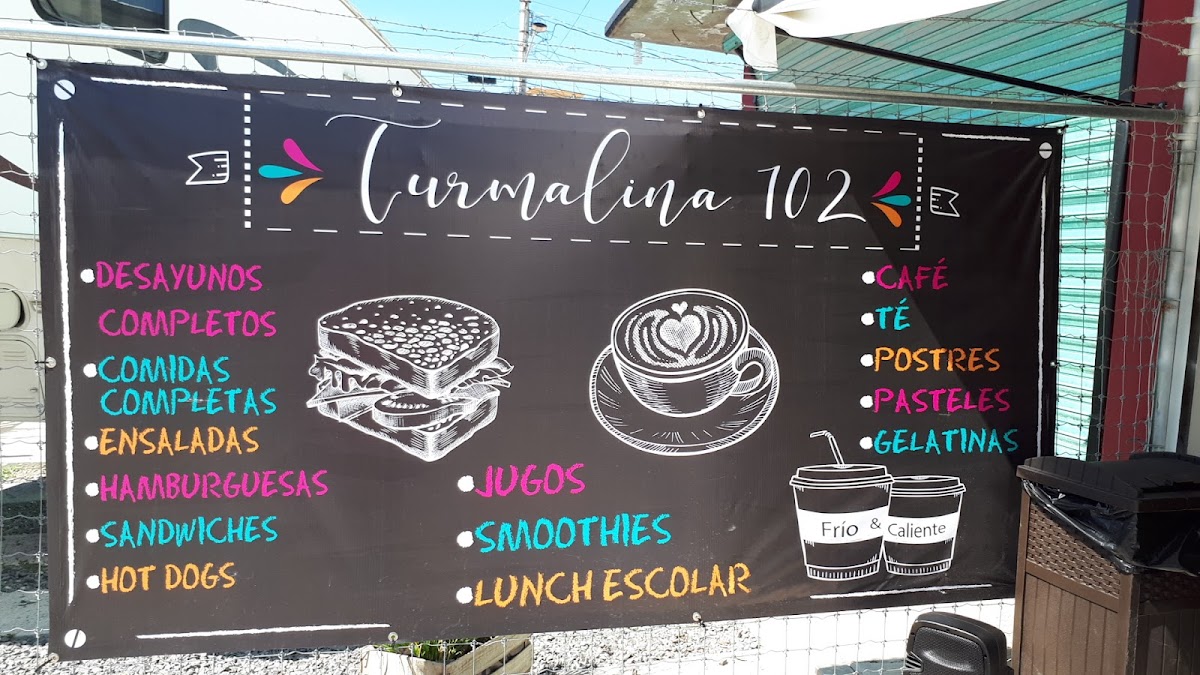 Turmalina 102
DESAYUNOS
COMPLETOS
COMIDAS
COMPLETAS
ENSALADAS
HAMBURGUESAS
SANDWICHES
HOT DOGS
JUGOS
SMOOTHIES
LUNCH ESCOLAR
CAFÉ
TÉ
POSTRES
PASTELES
GELATINAS
Frío & Caliente